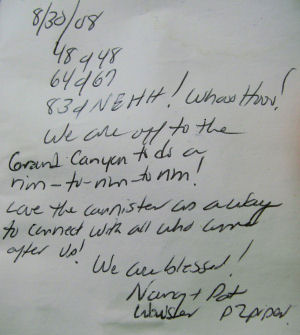 8/30/08
48 of 48
64 of 67
83 of NEHH! Whoo Hoo!
We are off to the
Grand Canyon to do a
rim-to-rim-to rim!
Love the cannister as a way
to connect with all who come
after us!
We are blessed!
Nancy + Pat